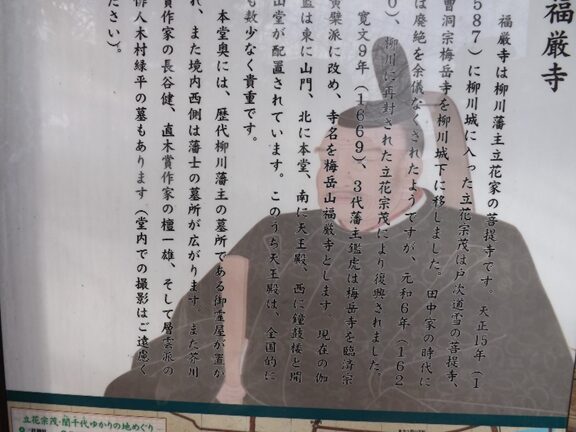 福厳寺
福厳寺は柳川藩主立花家の菩提寺です。天正15年（1
587）に柳川城に入った立花宗茂は戸次道雪の菩提寺、
曹洞宗梅岳寺を柳川城下に移しました。田中家の時代に
は廃絶を余儀なくされたようですが、元和6年（162
0）、柳川に再封された立花宗茂により復興されました。
寛文9年（1669）、3代藩主鑑虎は梅岳寺を臨済宗
黄檗派に改め、寺名を梅岳山福厳寺とします　現在の伽
藍は東に山門、北に本堂、南に天王殿、西に鐘鼓楼と開
山堂が配置されています。このうち天王殿は、全国的に
も数少なく貴重です。
本堂奥には、歴代柳川藩主の墓所である御霊屋が置か
れ、また境内西側は藩士の墓所が広がります。また芥川
賞作家の長谷健、直木賞作家の檀一雄、そして層雲派の
俳人木村緑平の墓もあります（堂内での撮影はご遠慮く
ださい）。
立花宗茂・誾千代ゆかりの地めぐり